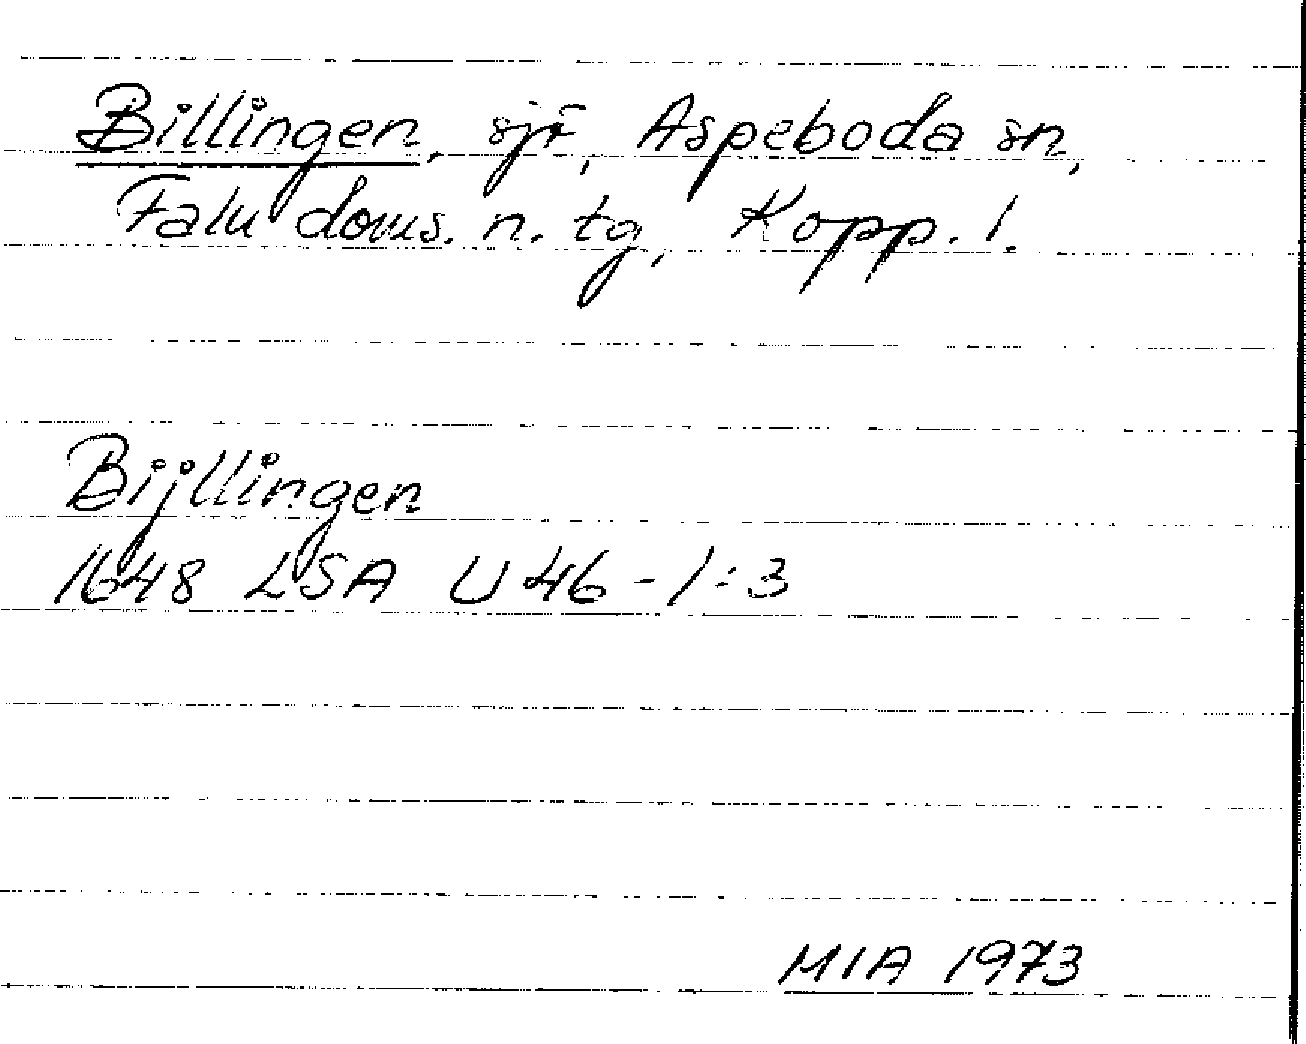 Billingen, sjö, Aspeboda sn,
Falu doms. n. tg, Kopp. l.
Bijllingen
1648 LSA U 46-1:3
MIA 1973